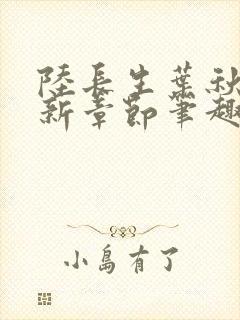 陸長生葉秋
新章節筆趣
小島有了